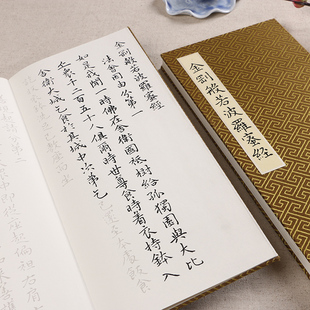 金剛般若波羅蜜經
法會因由分第一
如是我聞一時佛在舍衛國祇樹給孤獨園與大比
丘衆千二百五十人俱爾時世尊食時着衣持鉢入
舍衛大城乞食於其城中次第乞
金剛般若波羅蜜經